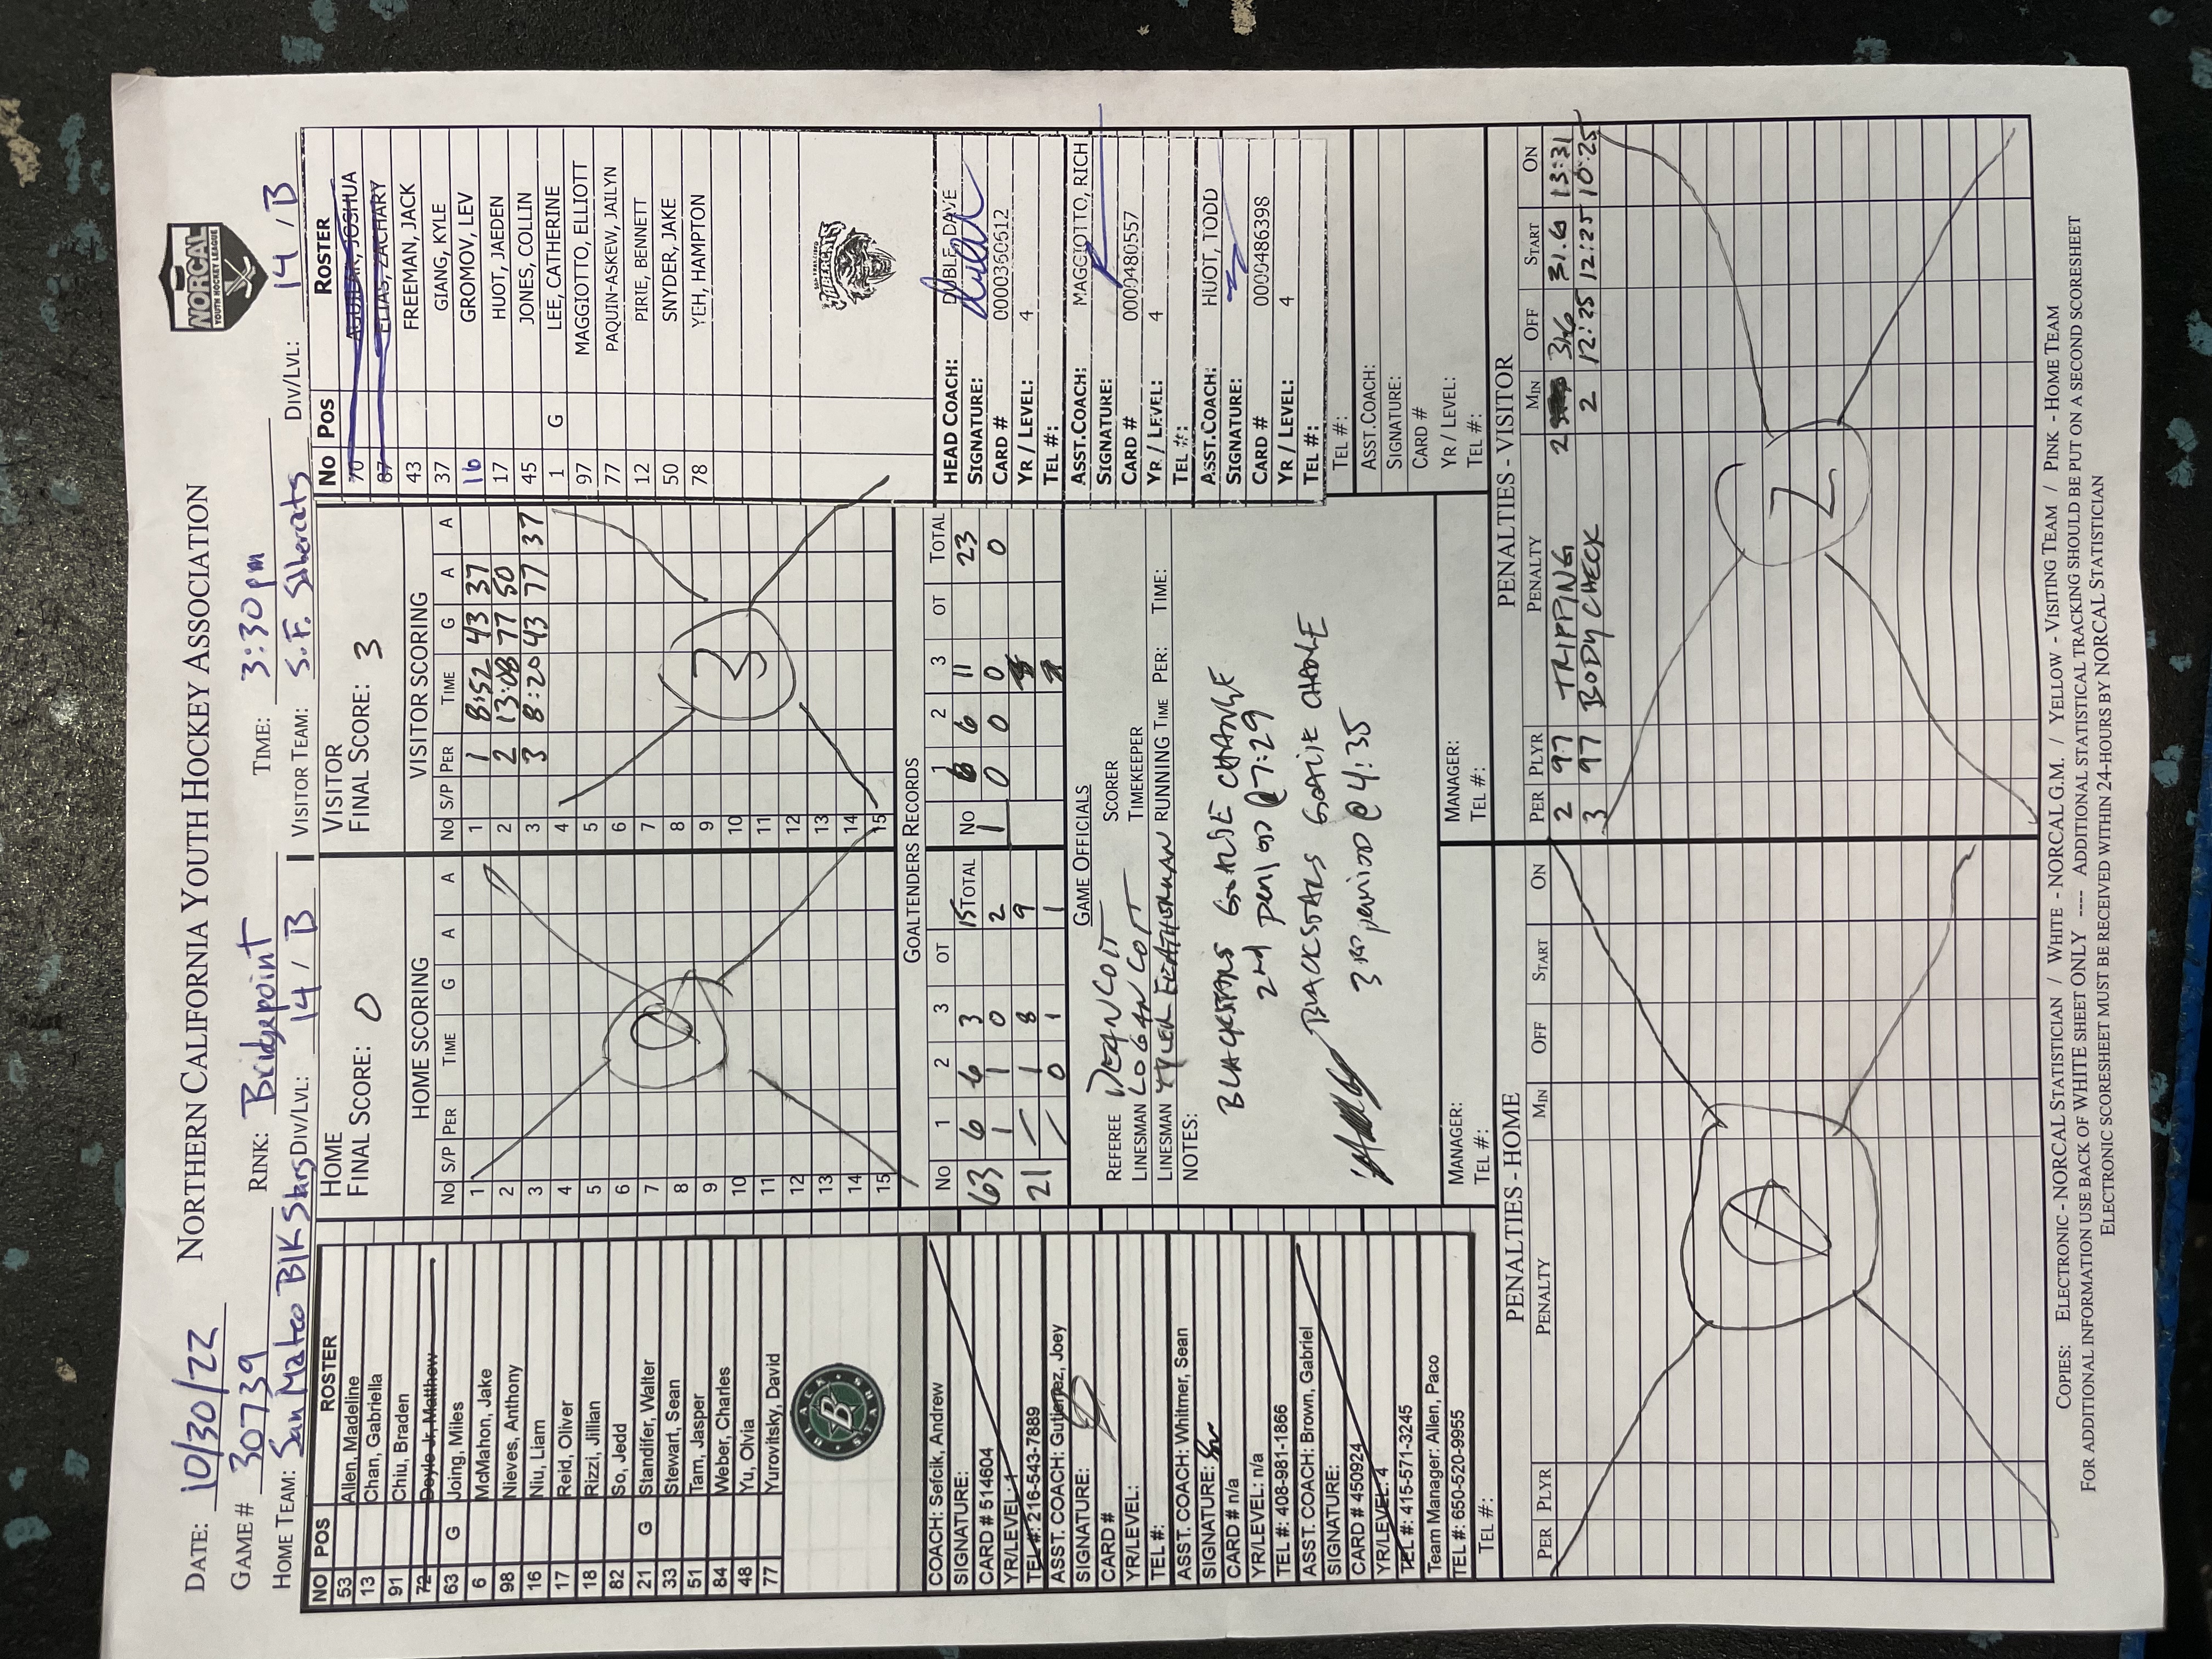 NORTHERN CALIFORNIA YOUTH HOCKEY ASSOCIATION
NORCAL
YOUTH HOCKEY LEAGUE
DATE: 10/30/22
GAME # 30739 RINK: Bridgepoint TIME: 3:30pm
HOME TEAM: San Mateo Blk Stars DIV/LVL: 14 / B VISITOR TEAM: S.F. Sabercats DIV/LVL: 14 / B
NO POS ROSTER
53 Allen, Madeline
13 Chan, Gabriella
91 Chiu, Braden
72 Doyle Jr, Matthew
63 G Joing, Miles
6 McMahon, Jake
98 Nieves, Anthony
16 Niu, Liam
17 Reid, Oliver
18 Rizzi, Jillian
82 So, Jedd
21 G Standifer, Walter
33 Stewart, Sean
51 Tam, Jasper
84 Weber, Charles
48 Yu, Olvia
77 Yurovitsky, David
BLACK STARS
B
COACH: Sefcik, Andrew
SIGNATURE:
CARD # 514604
YR/LEVEL: 1
TEL #: 216-543-7889
ASST. COACH: Gutierrez, Joey
SIGNATURE:
CARD #
YR/LEVEL:
TEL #:
ASST. COACH: Whitmer, Sean
SIGNATURE:
CARD # n/a
YR/LEVEL: n/a
TEL #: 408-981-1866
ASST. COACH: Brown, Gabriel
SIGNATURE:
CARD # 450924
YR/LEVEL: 4
TEL #: 415-571-3245
Team Manager: Allen, Paco
TEL #: 650-520-9955
TEL #:
HOME
FINAL SCORE: 0
HOME SCORING
NO S/P PER TIME G A A
1
2
3
4
5
6
7
8
9
10
11
12
13
14
15
0
VISITOR
FINAL SCORE: 3
VISITOR SCORING
NO S/P PER TIME G A A
1 1 8:52 43 37
2 2 13:08 77 50
3 3 8:20 43 77 37
4
5
6
7
8
9
10
11
12
13
14
15
3
GOALTENDERS RECORDS
NO 1 2 3 OT TOTAL NO 1 2 3 OT TOTAL
63 6 6 3 15 1 6 6 11 23
1 1 0 2 0 0 0 0
21 / 1 8 9
/ 0 1 1
GAME OFFICIALS
REFEREE DEAN COIT SCORER
LINESMAN LOGAN COIT TIMEKEEPER
LINESMAN RUNNING TIME PER: TIME:
NOTES:
BLACKSTARS GOALIE CHANGE
2nd period @ 7:29
BLACKSTARS GOALIE CHANGE
3RD period @ 4:35
MANAGER:
TEL #:
MANAGER:
TEL #:
No Pos ROSTER
70 AGUILAR, JOSHUA
87 ELIAS, ZACHARY
43 FREEMAN, JACK
37 GIANG, KYLE
16 GROMOV, LEV
17 HUOT, JAEDEN
45 JONES, COLLIN
1 G LEE, CATHERINE
97 MAGGIOTTO, ELLIOTT
77 PAQUIN-ASKEW, JAILYN
12 PIRIE, BENNETT
50 SNYDER, JAKE
78 YEH, HAMPTON
SAN FRANCISCO
SABERCATS
HEAD COACH: DUBLE, DAVE
SIGNATURE:
CARD # 0000360612
YR / LEVEL: 4
TEL #:
ASST.COACH: MAGGIOTTO, RICH
SIGNATURE:
CARD # 0000480557
YR / LEVEL: 4
TEL #:
ASST.COACH: HUOT, TODD
SIGNATURE:
CARD # 0000486398
YR / LEVEL: 4
TEL #:
TEL #:
ASST.COACH:
SIGNATURE:
CARD #
YR / LEVEL:
TEL #:
PENALTIES - HOME
PER PLYR PENALTY MIN OFF START ON
0
PENALTIES - VISITOR
PER PLYR PENALTY MIN OFF START ON
2 97 TRIPPING 2 31.6 31.6 13:31
3 97 BODY CHECK 2 12:25 12:25 10:25
2
COPIES: ELECTRONIC - NORCAL STATISTICIAN / WHITE - NORCAL G.M. / YELLOW - VISITING TEAM / PINK - HOME TEAM
FOR ADDITIONAL INFORMATION USE BACK OF WHITE SHEET ONLY ---- ADDITIONAL STATISTICAL TRACKING SHOULD BE PUT ON A SECOND SCORESHEET
ELECTRONIC SCORESHEET MUST BE RECEIVED WITHIN 24-HOURS BY NORCAL STATISTICIAN